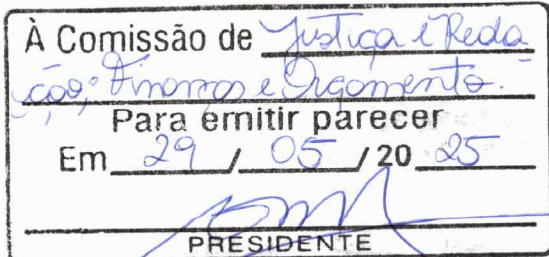 À Comissão de Justiça e Reda
ção; Finanças e Orçamento.
Para emitir parecer
Em 29 / 05 / 20 25
PRESIDENTE